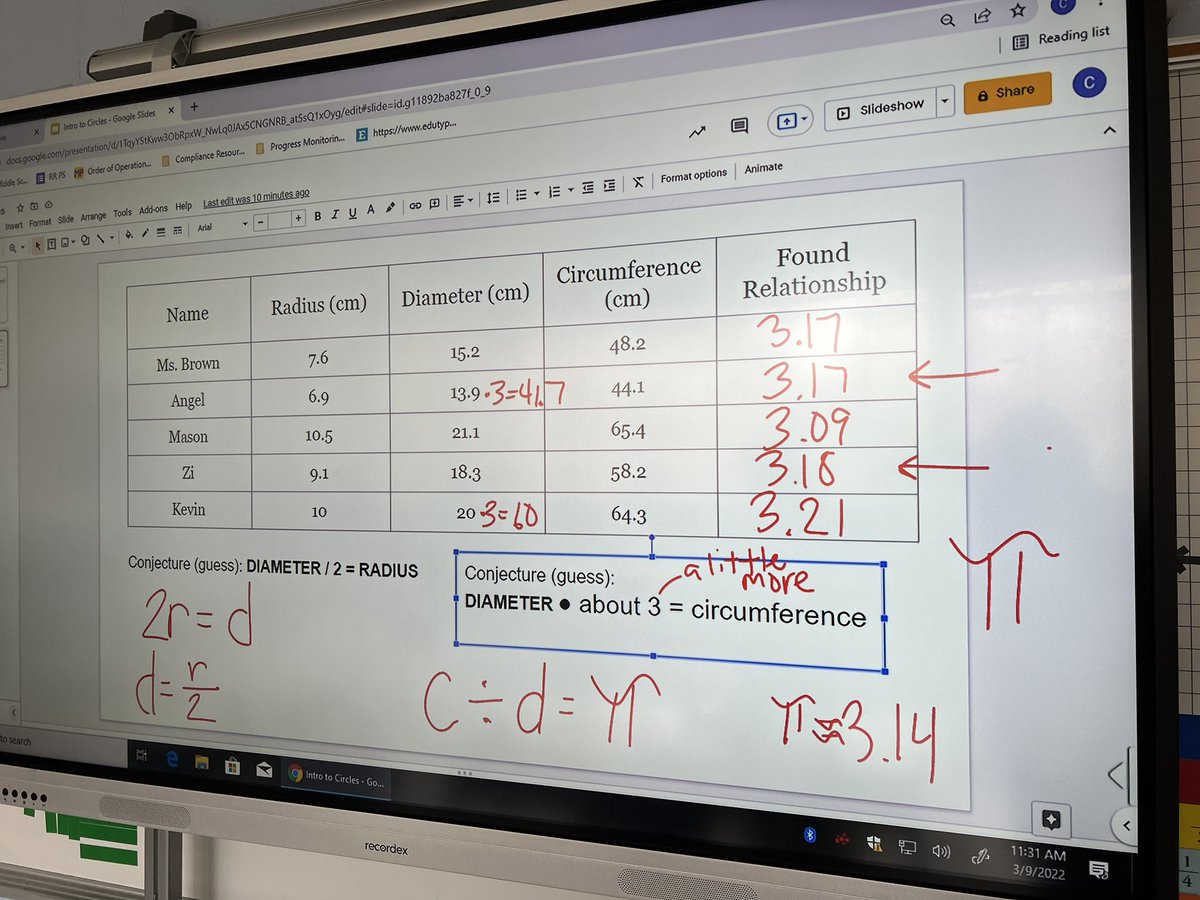 Intro to Circles - Google Slides
docs.google.com/presentation/d/1TqyY5tKww3ObRpxW_NwLq0JAx5CNGNRB_at5sQ1xOyg/edit#slide=id.g11892ba827f_0_9
Reading list
RR PS MP Order of Operation... Compliance Resour... Progress Monitorin... E https://www.edutyp...
Slideshow Share C
Insert Format Slide Arrange Tools Add-ons Help Last edit was 10 minutes ago
Arial - + B I U A Format options Animate
Name Radius (cm) Diameter (cm) Circumference (cm) Found Relationship
Ms. Brown 7.6 15.2 48.2 3.17
Angel 6.9 13.9 •3=41.7 44.1 3.17 ←
Mason 10.5 21.1 65.4 3.09
Zi 9.1 18.3 58.2 3.18 ←
Kevin 10 20 •3=60 64.3 3.21
π
Conjecture (guess): DIAMETER / 2 = RADIUS
2r=d
d=r/2
Conjecture (guess):
a little more
DIAMETER ● about 3 = circumference
C÷d=π
π≈3.14
to search
Intro to Circles - Go...
11:31 AM
3/9/2022
recordex
1
4